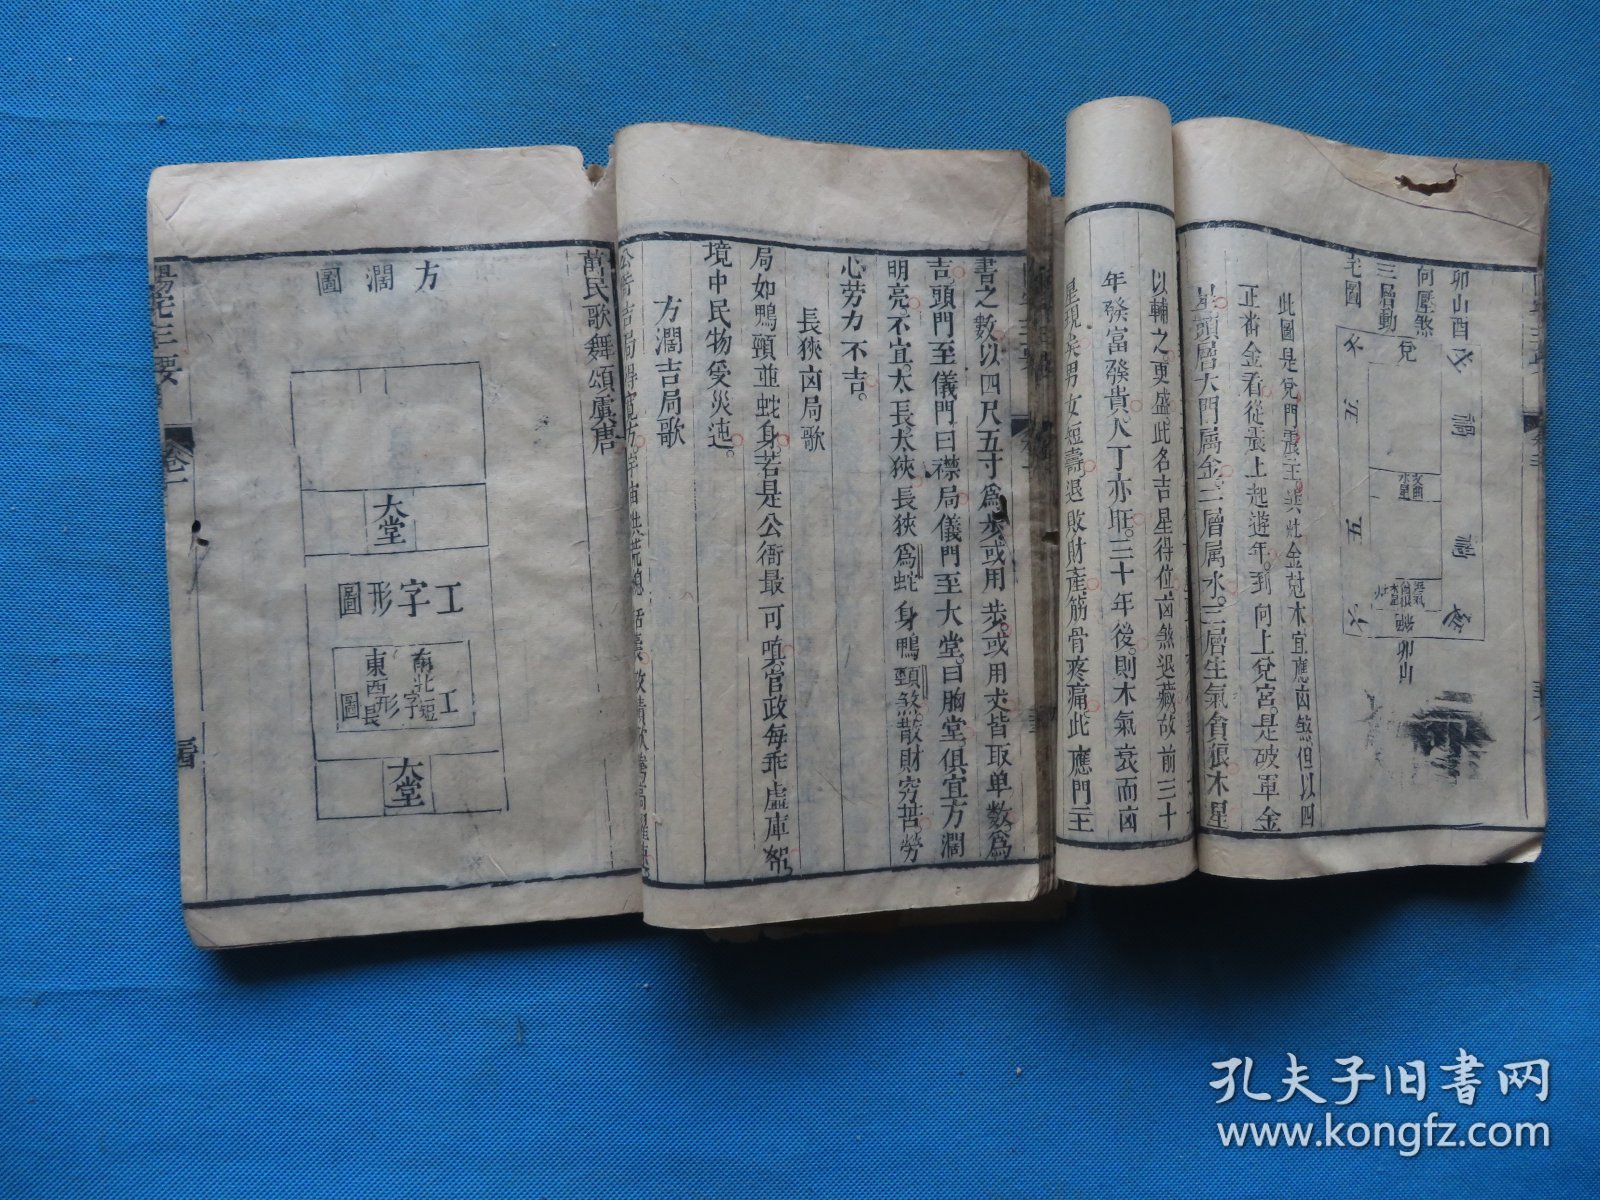 卯山酉
向壓煞
三層動
宅圖
兌
六
五
五
六
禍
禍
文曲
水星
卯山
此圖是兌門張主巽灶金尅木宜應凶煞但以四
正番金看從張上起遊年到向上兌宮是破軍金
星頭層大門属金二層属水三層生氣貪狼木星
以輔之更盛此名吉星得位凶煞退藏故前三十
年發富發貴人丁亦旺三十年後則木氣衰而凶
星現矣男女短壽退敗財產筋骨疼痛此應門主
書之數以四尺五寸為步或用步或用丈皆取单數為
吉頭門至儀門曰襟局儀門至大堂曰胸堂俱宜方濶
明亮不宜太長太狹長狹為蛇身鴨頸煞散財穷苦勞
心劳力不吉
長狹凶局歌
局如鴨頸並蛇身若是公衙最可嗔官政每乖虛庫帑
境中民物受災迍
方濶吉局歌
公衙吉局得寬方
萬民歌舞頌虞唐
方濶圖
大堂
工字形圖
南北短
工字形圖
東西長
大堂
陽宅三要
卷一
孔夫子旧书网
www.kongfz.com